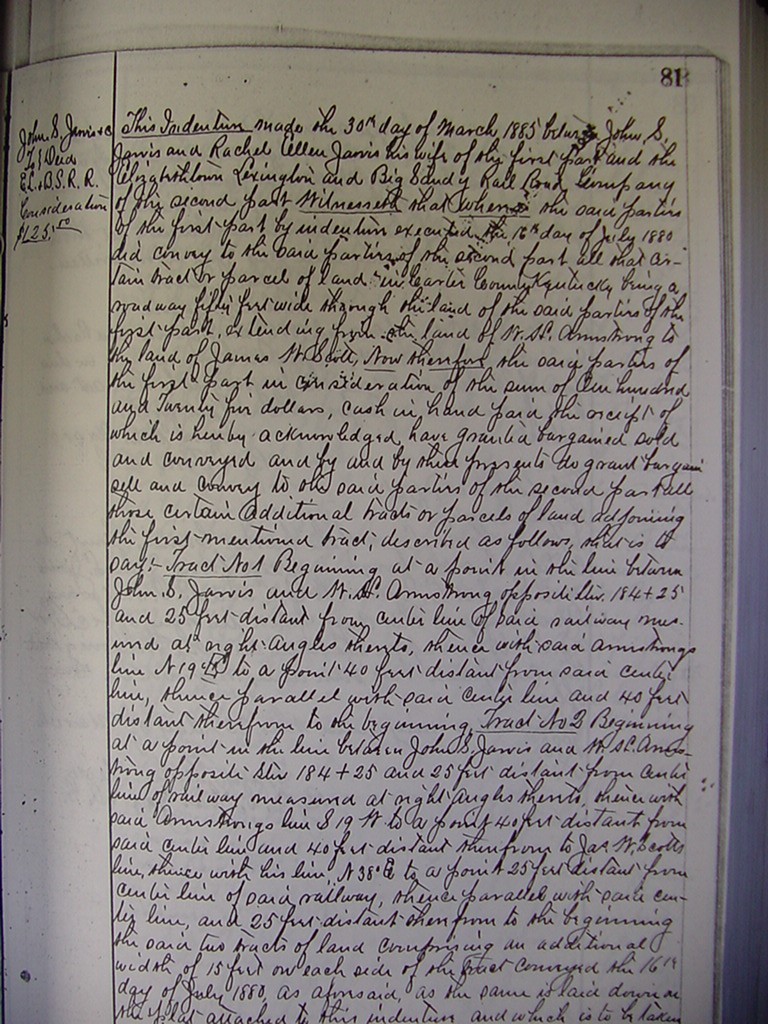 81
John S. Jarvis &c
To } Deed
E. L. & B. S. R. R.
Consideration
$125.00
This Indenture made the 30th day of March 1885 between John S.
Jarvis and Rachel Ellen Jarvis his wife of the first part and the
Elizabethtown Lexington and Big Sandy Rail Road Company
of the second part Witnesseth that whereas the said parties
of the first part by indenture executed the 16th day of July 1880
did convey to the said parties of the second part all that cer-
tain tract or parcel of land in Carter County Kentucky being a
roadway fifty feet wide through the land of the said parties of the
first part, extending from the land of W. St. Armstrong to
the land of James W. Scott, Now therefore, the said parties of
the first part in consideration of the sum of One hundred
and Twenty five dollars, cash in hand paid the receipt of
which is hereby acknowledged, have granted bargained sold
and conveyed and by and by these presents do grant bargain
sell and convey to the said parties of the second part all
those certain additional tracts or parcels of land adjoining
the first mentioned tract, described as follows, that is to
say:- Tract No 1 Beginning at a point in the line between
John S. Jarvis and W. St. Armstrong opposite Stn. 184+25
and 25 feet distant from center line of said railway meas-
ured at right angles thereto, thence with said Armstrongs
line N 19 E to a point 40 feet distant from said center
line, thence parallel with said center line and 40 feet
distant therefrom to the beginning, Tract No 2 Beginning
at a point in the line between John S. Jarvis and W. St. Arms-
trong opposite Stn 184+25 and 25 feet distant from center
line of railway measured at right angles thereto, thence with
said Armstrongs line S 19 W to a point 40 feet distant from
said center line and 40 feet distant therefrom to Jas W. Scotts
line, thence with his line, N 38° E to a point 25 feet distant from
center line of said railway, thence parallel with said cen-
ter line, and 25 feet distant therefrom to the beginning
the said two tracts of land comprising an additional
width of 15 feet on each side of the tract conveyed the 16th
day of July 1880, as aforesaid, as the same is laid down on
the plat attached to this indenture and which is to be taken